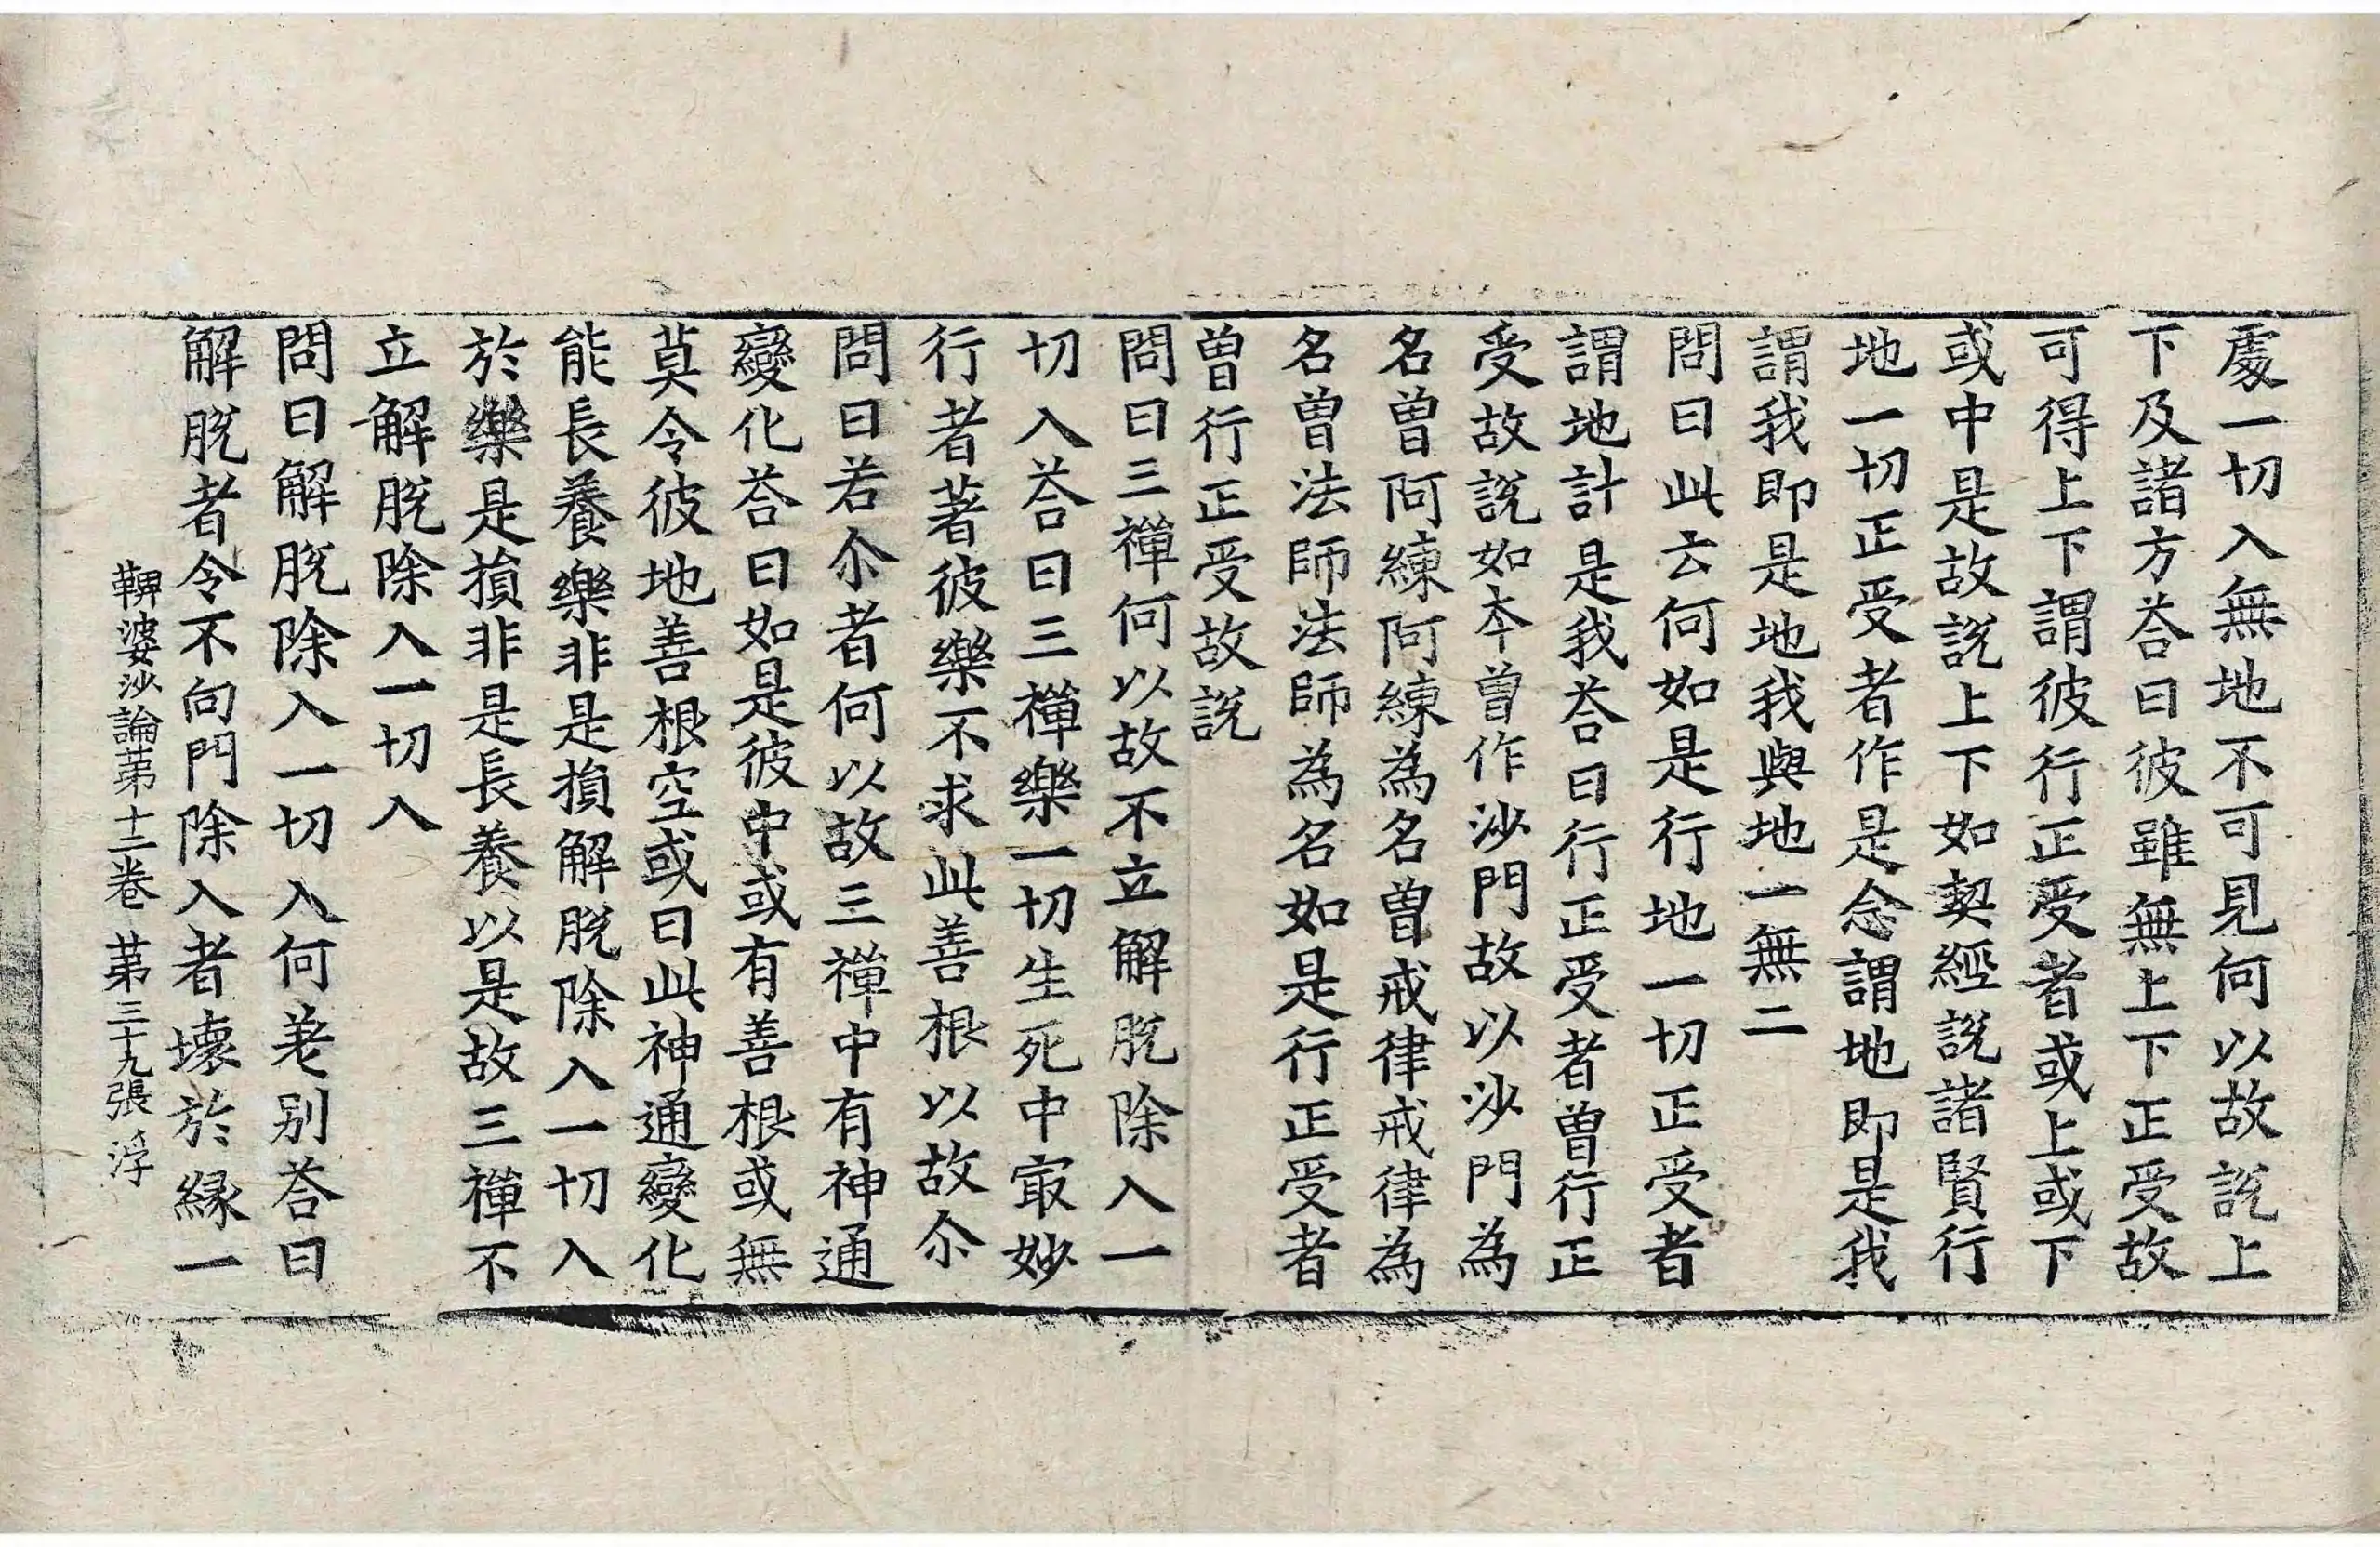 處一切入無地不可見何以故說上
下及諸方荅曰彼雖無上下正受故
可得上下謂彼行正受者或上或下
或中是故說上下如契經說諸賢行
地一切正受者作是念謂地即是我
謂我即是地我與地一無二
問曰此云何如是行地一切正受者
謂地計是我荅曰行正受者曾行正
受故說如本曾作沙門故以沙門為
名曾阿練阿練為名曾戒律戒律為
名曾法師法師為名如是行正受者
曾行正受故說
問曰三禪何以故不立解脫除入一
切入荅曰三禪樂一切生死中㝡妙
行者著彼樂不求此善根以故尒
問曰若尒者何以故三禪中有神通
變化荅曰如是彼中或有善根或無
莫令彼地善根空或曰此神通變化
能長養樂非是損解脫除入一切入
於樂是損非是長養以是故三禪不
立解脫除入一切入
問曰解脫除入一切入何差别荅曰
解脫者令不向門除入者壞於緣一
鞞婆沙論苐十二卷 苐三十九張 浮